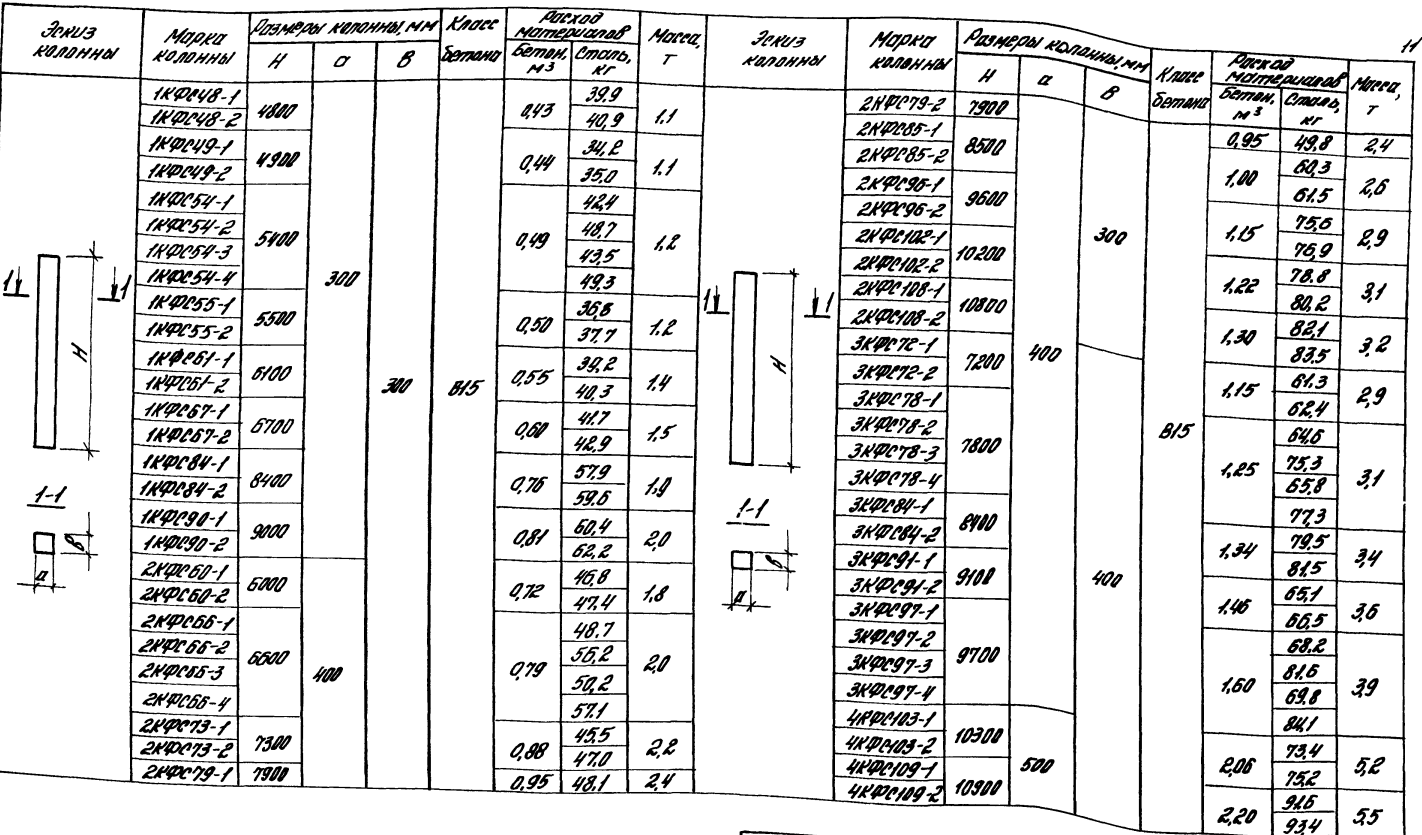 11
Эскиз колонны | Марка колонны | Размеры колонны, мм | Класс бетона | Расход материалов | Масса, т
H | а | в | Бетон, м³ | Сталь, кг
1КФС48-1 | 4800 | 300 | 300 | В15 | 0,43 | 39,9 | 1.1
1КФС48-2 | 40,9
1КФС49-1 | 4900 | 0,44 | 34,2 | 1.1
1КФС49-2 | 35,0
1КФС54-1 | 5400 | 0,49 | 42,4 | 1,2
1КФС54-2 | 48,7
1КФС54-3 | 43,5
1КФС54-4 | 49,3
1КФС55-1 | 5500 | 0,50 | 36,8 | 1,2
1КФС55-2 | 37,7
1КФС61-1 | 6100 | 0,55 | 39,2 | 1,4
1КФС61-2 | 40,3
1КФС67-1 | 6700 | 0,60 | 41,7 | 1,5
1КФС67-2 | 42,9
1КФС84-1 | 8400 | 0,76 | 57,9 | 1,9
1КФС84-2 | 59,6
1КФС90-1 | 9000 | 0,81 | 60,4 | 2,0
1КФС90-2 | 62,2
2КФС60-1 | 6000 | 400 | 0,72 | 46,8 | 1,8
2КФС60-2 | 47,4
2КФС66-1 | 6600 | 0,79 | 48,7 | 2,0
2КФС66-2 | 56,2
2КФС66-3 | 50,2
2КФС66-4 | 57,1
2КФС73-1 | 7300 | 0,88 | 45,5 | 2,2
2КФС73-2 | 47,0
2КФС79-1 | 7900 | 0,95 | 48,1 | 2,4
1 1
H
1-1
в
а
Эскиз колонны | Марка колонны | Размеры колонны, мм | Класс бетона | Расход материалов | Масса, т
H | а | в | Бетон, м³ | Сталь, кг
2КФС79-2 | 7900 | 400 | 300 | В15 | 0,95 | 49,8 | 2,4
2КФС85-1 | 8500 | 1,00 | 60,3 | 2,6
2КФС85-2 | 61.5
2КФС96-1 | 9600 | 1,15 | 75,6 | 2,9
2КФС96-2 | 76,9
2КФС102-1 | 10200 | 1,22 | 78.8 | 3,1
2КФС102-2 | 80,2
2КФС108-1 | 10800 | 1,30 | 82,1 | 3,2
2КФС108-2 | 83,5
3КФС72-1 | 7200 | 400 | 1,15 | 61,3 | 2,9
3КФС72-2 | 62,4
3КФС78-1 | 7800 | 1,25 | 64,6 | 3,1
3КФС78-2 | 75,3
3КФС78-3 | 65,8
3КФС78-4 | 77,3
3КФС84-1 | 8400 | 1,34 | 79,5 | 3,4
3КФС84-2 | 81,5
3КФС91-1 | 9100 | 1,46 | 65,1 | 3,6
3КФС91-2 | 66,5
3КФС97-1 | 9700 | 1,60 | 68,2 | 3,9
3КФС97-2 | 81,6
3КФС97-3 | 69,8
3КФС97-4 | 84,1
4КФС103-1 | 10300 | 500 | 2,06 | 73,4 | 5,2
4КФС103-2 | 75,2
4КФС109-1 | 10900 | 2,20 | 91,6 | 5,5
4КФС109-2 | 93,4
1 1
H
1-1
в
а